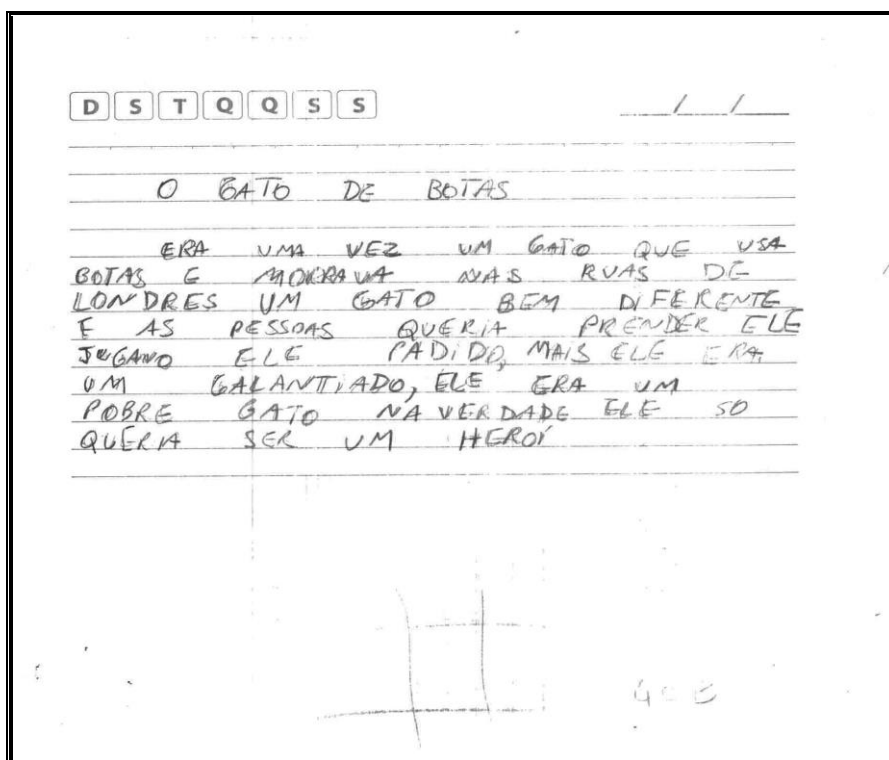 D S T Q Q S S / /
O GATO DE BOTAS
ERA UMA VEZ UM GATO QUE USA
BOTAS E MORAVA NAS RUAS DE
LONDRES UM GATO BEM DIFERENTE
E AS PESSOAS QUERIA PRENDER ELE
JUGANO ELE PADIDO, MAIS ELE ERA
UM GALANTIADO, ELE ERA UM
POBRE GATO NA VERDADE ELE SO
QUERIA SER UM HEROÍ